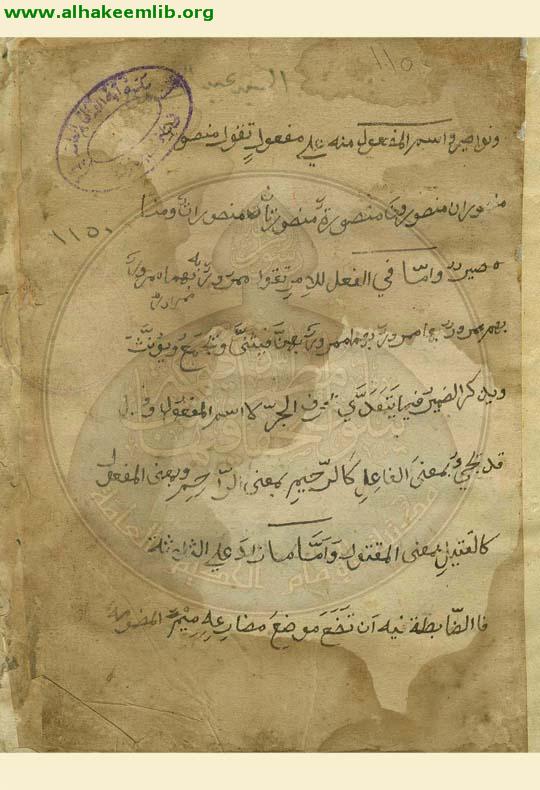 www.alhakeemlib.org
١١٥
ونواصر واسم المفعول منه علي مفعول تقول منصور
منصوران منصورون منصورة منصورتان منصورات ومنا
صير واما في الفعل اللازم تقول ممرور به بهما ممرور
١١٥٠
بهم ممرور بها ممرور بهما ممرور بهن فيثنى ويجمع ويؤنث
ويذكر الضمير فيما يتعدي بحرف الجر لا اسم المفعول و
قد تجيء بمعنى الفاعل كالرحيم بمعنى الراحم وبمعنى المفعول
كالقتيل بمعنى المقتول واما ما زاد علي الثلاثة
فاالضابطة فيه ان تضع موضع مضارعه ميم المضمومة